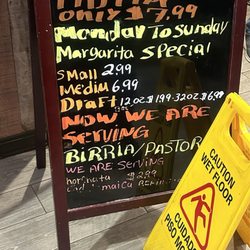 only $7.99
Monday To Sunday
Margarita Special
Small 2.99
Media 6.99
Draft 12oz $1.99-32oz $6.99
NOW WE ARE
SERVING
BIRRIA/PASTOR
WE ARE SERVING
horchata $2.99
maica
CAUTION
WET FLOOR
CUIDADO
PISO MOJADO